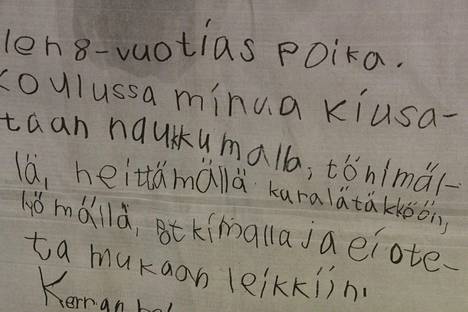 len 8-vuotias poika.
koulussa minua kiusa-
taan naukkumalla, tönimäl-
lä, heittämällä kuralätäkköön,
lyömällä, potkimalla ja ei ote-
ta mukaan leikkiin.
Kerran